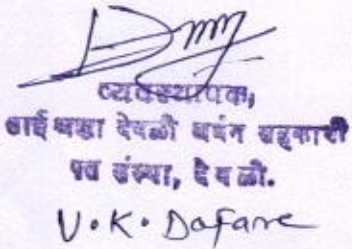 व्यवस्थापक,
साई श्रद्धा देवळी अर्बन सहकारी
पत संस्था, देवळी.
V. K. Dafare